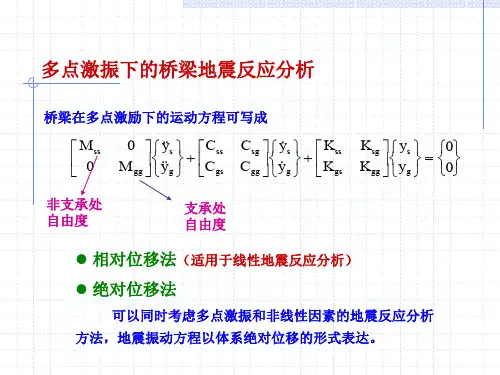 多点激振下的桥梁地震反应分析
桥梁在多点激励下的运动方程可写成
[M_ss 0; 0 M_gg]{ÿ_s; ÿ_g} + [C_ss C_sg; C_gs C_gg]{ẏ_s; ẏ_g} + [K_ss K_sg; K_gs K_gg]{y_s; y_g} = {0; 0}
非支承处
自由度
支承处
自由度
● 相对位移法（适用于线性地震反应分析）
● 绝对位移法
可以同时考虑多点激振和非线性因素的地震反应分析
方法，地震振动方程以体系绝对位移的形式表达。